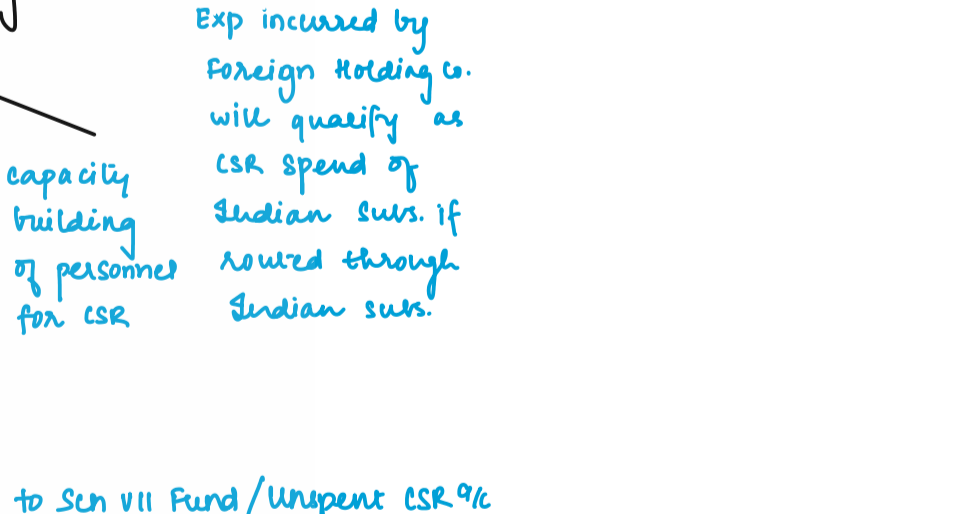 Exp incurred by
Foreign Holding Co.
will qualify as
CSR Spend of
Indian Subs. if
routed through
Indian subs.
capacity
building
of personnel
for CSR
to Sch VII Fund/Unspent CSR a/c